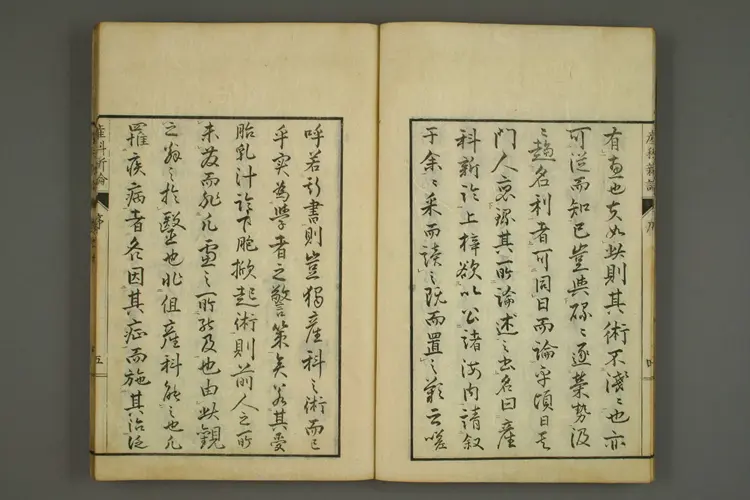 有進也夫如此則其術不淺〻也亦
可従而知已豈與碌〻逐榮勢汲
〻趨名利者可同日而論乎頃日其
門人裒録其所論述之書名曰産
科新論上梓欲以公諸海内請叙
于余〻采而讀之既而置之歎云嗟
呼若新書則豈獨産科之術而已
乎実為學者之警策矣若其受
胎乳汁診下胞救起術則前人之所
未發而非凡盧之所能及也由此觀
之翁之於醫也非但産科能之也凡
罹疾病者各因其症而施其治法
産科新論
序
五